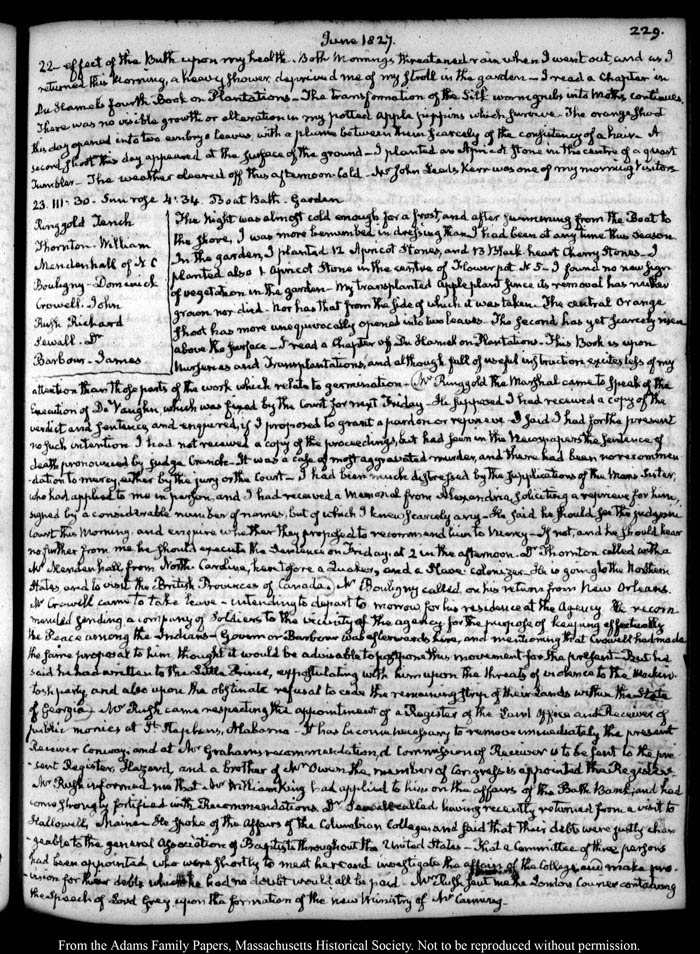 June 1827.
229.
22 – effect of the Bath upon my health. Both Mornings threatened rain when I went out, and as I
returned this Morning, a heavy shower, deprived me of my stroll in the garden – I read a Chapter in
Du Hamel's fourth Book on Plantations – The transformation of the Silk worm grubs into Moths continues.
There was no visible growth or alteration in my potted apple pippins which survive – The orange shoot
this day opened into two embryo leaves, with a plume between them scarcely of the consistency of a hair – A
second shoot this day appeared at the surface of the ground – I planted an Apricot stone in the centre of a quart
Tumbler – The weather cleared off this afternoon cold – Mr John Leeds Kerr was one of my morning Visitors
23. III:30. Sun rose 4:34. Boat Bath – Garden
Ringgold Tench
Thornton. William
Mendenhall of N C
Bouligny – Dominick
Crowell. John
Rush Richard
Sewall. Dr
Barbour – James
The Night was almost cold enough for a frost, and after swimming from the Boat to
the shore, I was more benumbed in dressing than I had been at any time this season
In the garden, I planted 12 Apricot Stones, and 13 Black heart Cherry Stones – I
planted also 1 Apricot Stone in the centre of Flower pot N. 5 – I found no new sign
of vegetation in the garden – My transplanted apple plant since its removal has neither
grown nor died – nor has that from the side of which it was taken – The central Orange
Shoot has more unequivocally opened into two leaves – The second has yet scarcely risen
above the surface – I read a Chapter of Du Hamel on Plantations – This Book is upon
Nurseries and Transplantations, and although full of useful instruction excites less of my
attention than those parts of the work which relate to germination – Mr Ringgold the Marshal came to speak of the
Execution of De Vaughn, which was fixed by the Court for next Friday – He supposed I had received a copy of the
verdict and sentence, and enquired, if I proposed to grant a pardon or reprieve – I said I had for the present
no such intention I had not received a copy of the proceedings, but had seen in the Newspapers the sentence of
death pronounced by Judge Cranch – It was a case of most aggravated murder, and there had been no recommen-
-dation to mercy, either by the jury or the Court – I had been much distressed by the supplications of the Man's Sister,
who had applied to me in person, and I had received a Memorial from Alexandria, soliciting a reprieve for him,
signed by a considerable number of names, but of which I knew scarcely any – He said he should see the judges in
Court this Morning, and enquire whether they proposed to recommend him to Mercy – If not, and he should hear
no further from me he should execute the Sentence on Friday, at 2 in the afternoon. Dr Thornton called with a
Mr Mendenhall, from North Carolina, heretofore a Quaker, and a Slave-colonizer – He is going to the Northern
States and to visit the British Provinces of Canada – Mr Bouligny called, on his return from New Orleans.
Mr Crowell came to take leave – intending to depart to morrow for his residence at the Agency. He recom-
mended sending a company of Soldiers to the vicinity of the agency for the purpose of keeping effectually
the Peace among the Indians – Governor Barbour was afterwards here, and mentioning that Crowell had made
the same proposal to him, thought it would be advisable to postpone this movement for the present – But he
said he had written to the Little Prince, expostulating with him upon the threats of violence to the MacIn-
tosh party, and also upon the obstinate refusal to cede the remaining strip of their Lands within the State
of Georgia – Mr Rush came respecting the appointment of a Register of the Land Office and Receiver of
public monies at St. Stephens, Alabama – It has become necessary to remove immediately the present
Receiver Conway, and at Mr Graham's recommendation, a Commission of Receiver is to be sent to the pre-
sent Register, Hazard, and a brother of Mr Owen the member of Congress is appointed the Register –
Mr Rush informed me that Mr William King had applied to him on the affairs of the Bath Bank, and had
come strongly fortified with Recommendations. Dr Sewall called, having recently returned from a visit to
Hallowell, Maine – He spoke of the Affairs of the Columbian College, and said that their debts were justly char-
-geable to the general Association of Baptists throughout the United States – That a Committee of three persons
had been appointed who were shortly to meet here and investigate the affairs of the College, and make pro-
-vision for their debts which he had no doubt would all be paid – Mr Rush sent me the London Courier containing
the Speech of Lord Grey upon the formation of the new Ministry of Mr Canning –
From the Adams Family Papers, Massachusetts Historical Society. Not to be reproduced without permission.